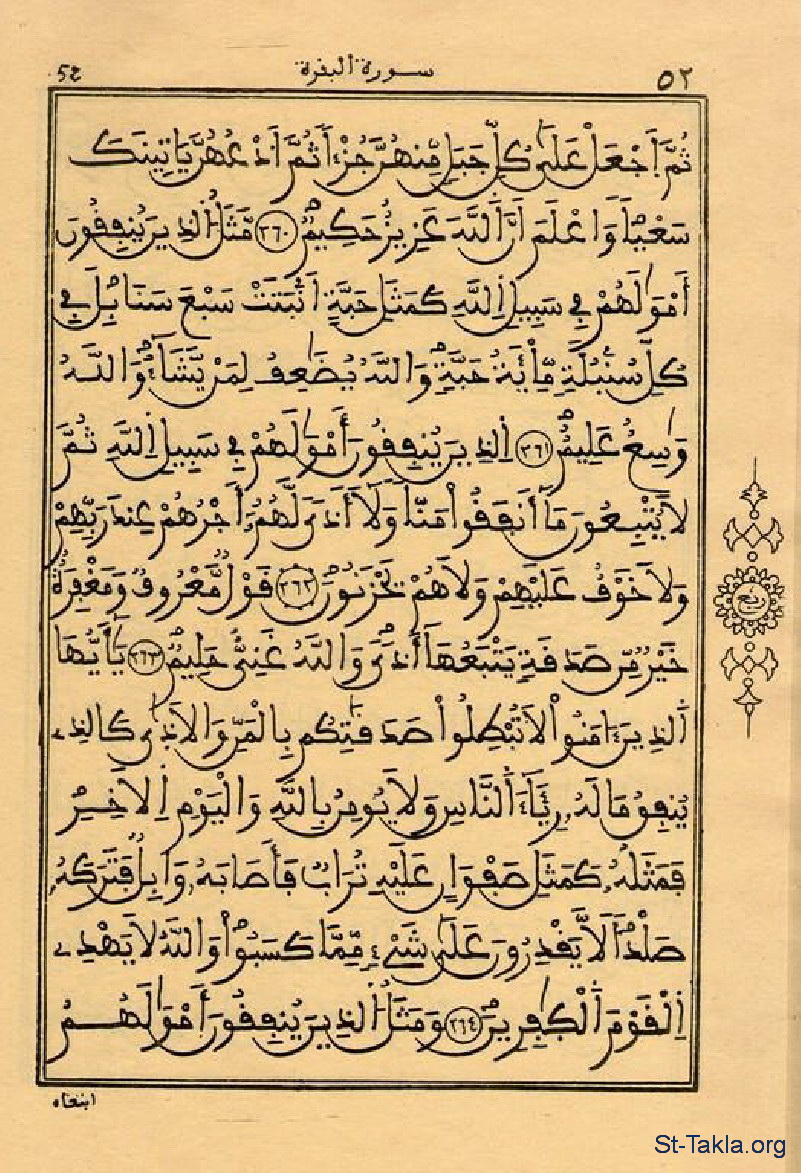 52 سورة البقرة ٥٢
ثُمَّ اَجْعَلْ عَلَىٰ كُلِّ جَبَلٍ مِّنْهُنَّ جُزْءاً ثُمَّ اَدْعُهُنَّ يَاتِينَكَ
سَعْياً وَاعْلَمَ اَنَّ اَللَّهَ عَزِيزٌ حَكِيمٌ ٢٦٠ مَّثَلُ الذِينَ يُنفِقُونَ
أَمْوَٰلَهُمْ فِي سَبِيلِ اِللَّهِ كَمَثَلِ حَبَّةٍ اَنۢبَتَتْ سَبْعَ سَنَابِلَ فِي
كُلِّ سُنۢبُلَةٍ مِّاْئَةُ حَبَّةٍ وَاللَّهُ يُضَٰعِفُ لِمَنْ يَّشَآءُ وَاللَّهُ
وَٰسِعٌ عَلِيمٌ ٢٦١ اِلذِينَ يُنفِقُونَ أَمْوَٰلَهُمْ فِي سَبِيلِ اِللَّهِ ثُمَّ
لاَ يُتْبِعُونَ مَآ أَنفَقُواْ مَنّاً وَلَآ أَذىً لَّهُمُۥٓ أَجْرُهُمْ عِندَ رَبِّهِمْ
وَلاَ خَوْفٌ عَلَيْهِمْ وَلاَ هُمْ يَحْزَنُونَ ٢٦٢ قَوْلٌ مَّعْرُوفٌ وَمَغْفِرَةٌ
خَيْرٌ مِّن صَدَقَةٍ يَتْبَعُهَآ أَذىً وَاللَّهُ غَنِيٌّ حَلِيمٌ ٢٦٣ يَٰٓأَيُّهَا
اَلذِينَ ءَامَنُواْ لاَ تُبْطِلُواْ صَدَقَٰتِكُم بِالْمَنِّ وَالاَذَىٰ كَالذِے
يُنفِقُ مَالَهُۥ رِئَآءَ اَلنَّاسِ وَلاَ يُومِنُ بِاللَّهِ وَالْيَوْمِ اِلاَخِرِ
فَمَثَلُهُۥ كَمَثَلِ صَفْوَانٍ عَلَيْهِ تُرَابٌ فَأَصَابَهُۥ وَابِلٌ فَتَرَكَهُۥ
صَلْداً لاَّ يَقْدِرُونَ عَلَىٰ شَےْءٍ مِّمَّا كَسَبُواْ وَاللَّهُ لاَ يَهْدِے
اِلْقَوْمَ اَلْكَٰفِرِينَ ٢٦٤ وَمَثَلُ الذِينَ يُنفِقُونَ أَمْوَٰلَهُمُ
ابتغاء
ربع
St-Takla.org